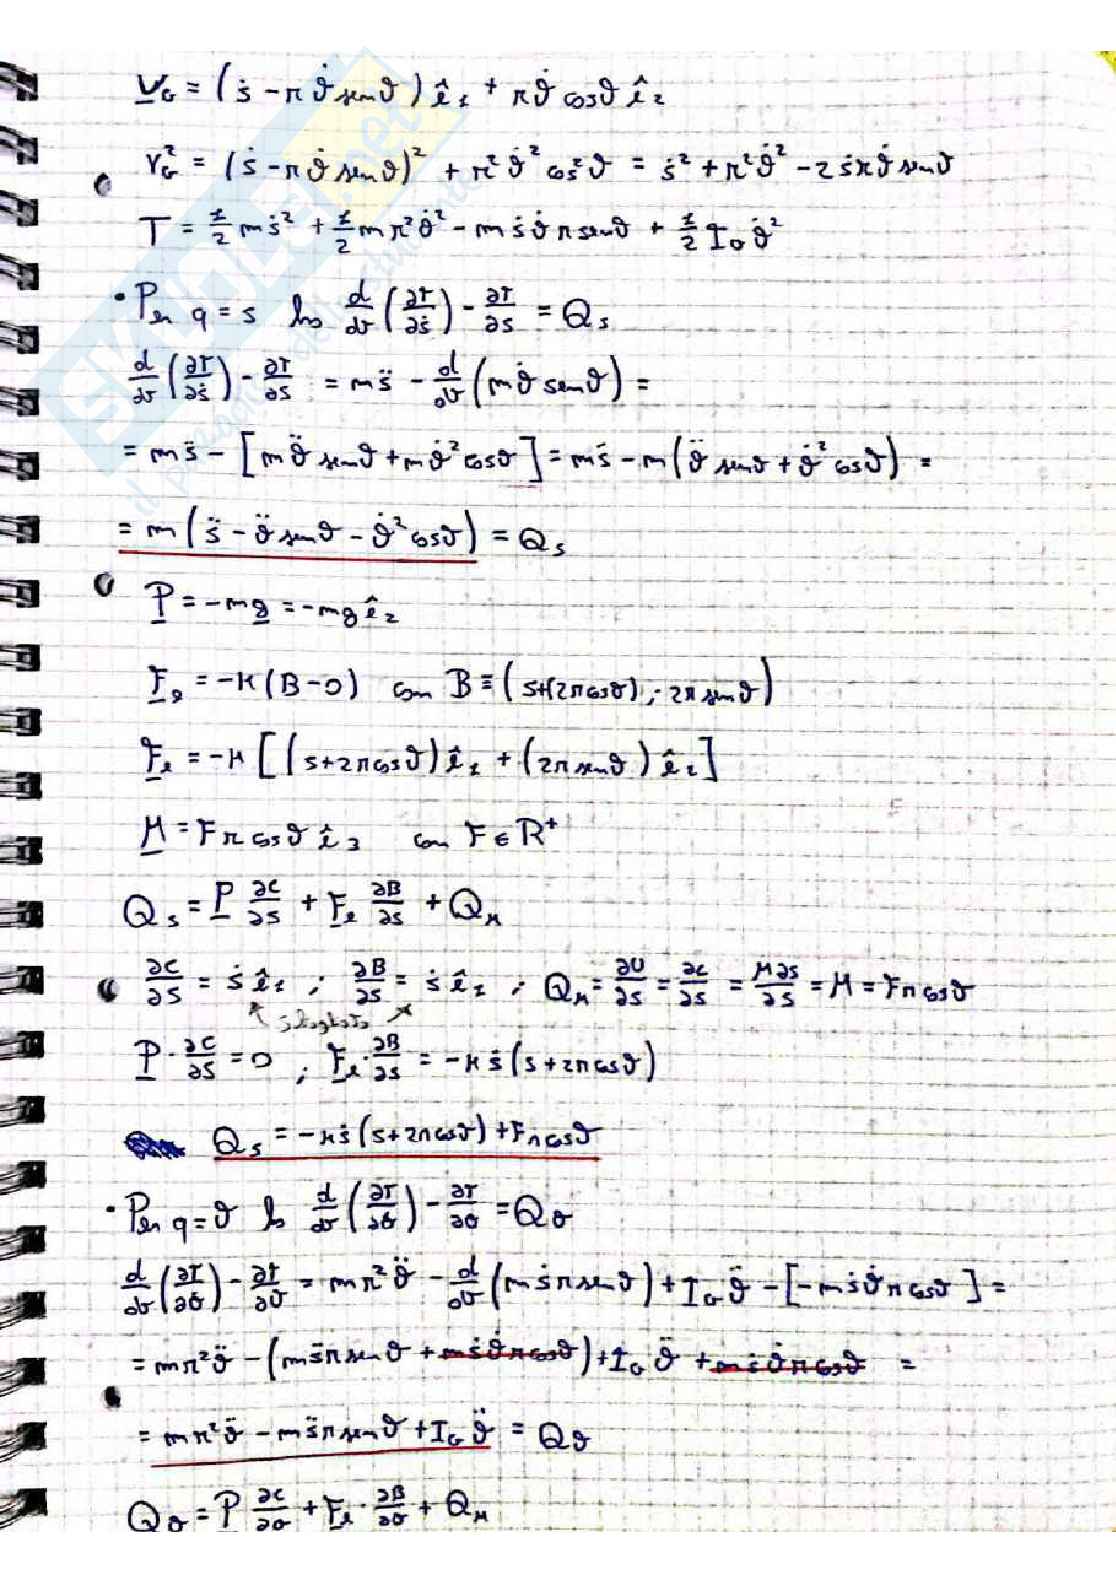 V_G = (ṡ - r ϑ̇ senϑ) ê₁ + r ϑ̇ cosϑ ê₂
V_G² = (ṡ - r ϑ̇ senϑ)² + r² ϑ̇² cos²ϑ = ṡ² + r² ϑ̇² - 2 ṡ r ϑ̇ senϑ
T = 1/2 m ṡ² + 1/2 m r² ϑ̇² - m ṡ ϑ̇ r senϑ + 1/2 I_G ϑ̇²
• Per q = s ho d/dt (∂T/∂ṡ) - ∂T/∂s = Q_s
d/dt (∂T/∂ṡ) - ∂T/∂s = m s̈ - d/dt (m ϑ̇ senϑ) =
= m s̈ - [m ϑ̈ senϑ + m ϑ̇² cosϑ] = m s̈ - m (ϑ̈ senϑ + ϑ̇² cosϑ) =
= m (s̈ - ϑ̈ senϑ - ϑ̇² cosϑ) = Q_s
P = -mg = -mg ê₂
F_e = -K (B-O) con B ≡ (s+(2r cosϑ) ; 2r senϑ)
F_e = -K [(s+2r cosϑ) ê₁ + (2r senϑ) ê₂]
M = F r cosϑ ê₃ con F ∈ R⁺
Q_s = P ∂C/∂s + F_e ∂B/∂s + Q_M
∂C/∂s = ṡ ê₁ ; ∂B/∂s = ṡ ê₁ ; Q_M = ∂U/∂s = ∂L/∂s = M∂s/∂s = M = F r cosϑ
sbagliato
P · ∂C/∂s = 0 ; F_e · ∂B/∂s = -K ṡ (s+2r cosϑ)
Q_s = -K ṡ (s+2r cosϑ) + F r cosϑ
• Per q = ϑ ho d/dt (∂T/∂ϑ̇) - ∂T/∂ϑ = Q_ϑ
d/dt (∂T/∂ϑ̇) - ∂T/∂ϑ = m r² ϑ̈ - d/dt (m ṡ r senϑ) + I_G ϑ̈ - [-m ṡ ϑ̇ r cosϑ] =
= m r² ϑ̈ - (m s̈ r senϑ + m ṡ ϑ̇ r cosϑ) + I_G ϑ̈ + m ṡ ϑ̇ r cosϑ =
= m r² ϑ̈ - m s̈ r senϑ + I_G ϑ̈ = Q_ϑ
Q_ϑ = P ∂C/∂ϑ + F_e · ∂B/∂ϑ + Q_M